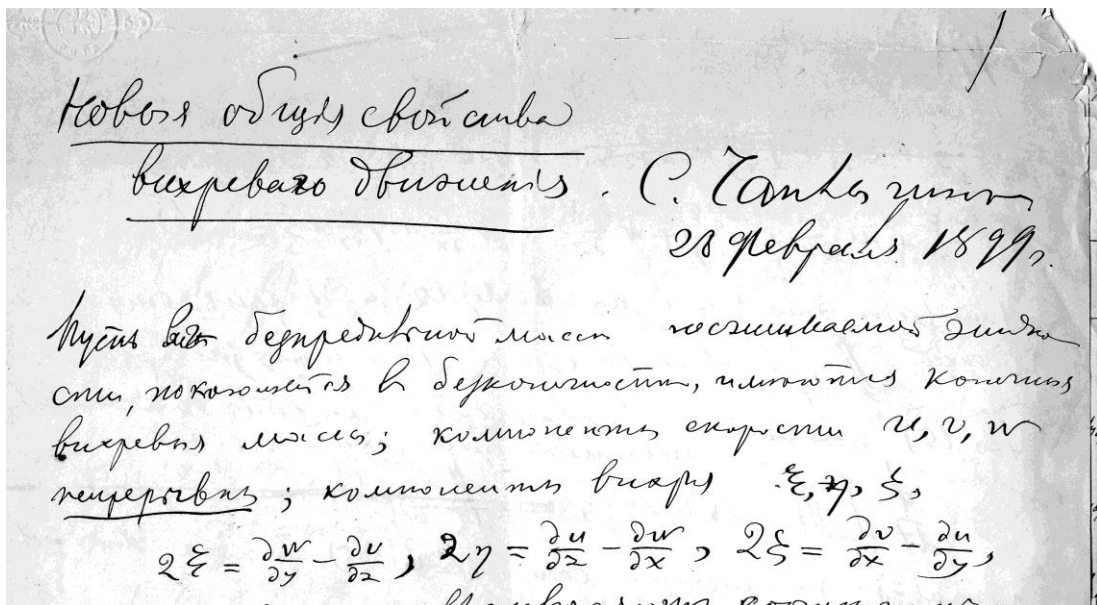 Новыя общія свойства
вихреваго движенія. С. Чаплыгин
28 февраля 1899 г.
Пусть въ безпредѣльной массѣ несжимаемой жидко
сти, покоющейся в безконечности, имѣются конечныя
вихревыя массы; компоненты скорости u, v, w
непрерывны; компоненты вихря ξ, η, ζ,
2ξ = ∂w/∂y − ∂v/∂z, 2η = ∂u/∂z − ∂w/∂x, 2ζ = ∂v/∂x − ∂u/∂y,